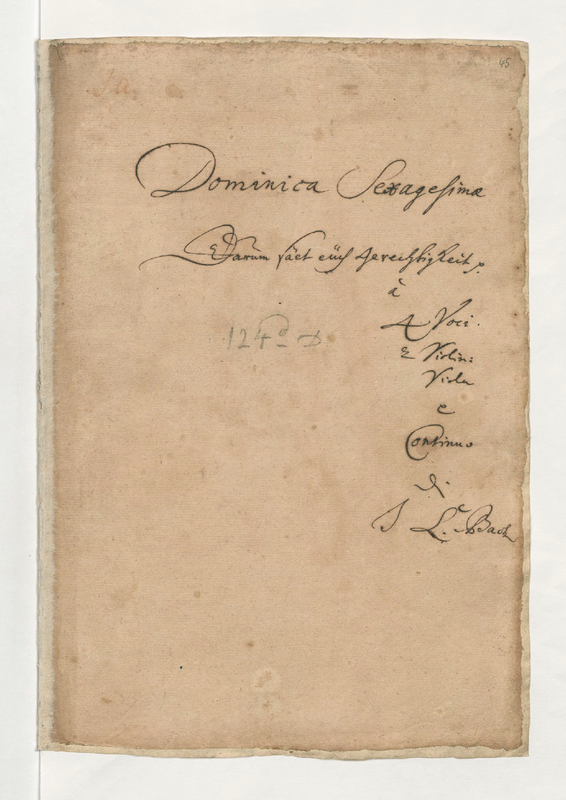 45
Dominica Sexagesimæ
Darum säet euch Gerechtigkeit
à
4 Voci.
2 Violin:
Viola
e
Continuo
di
J L. Bach